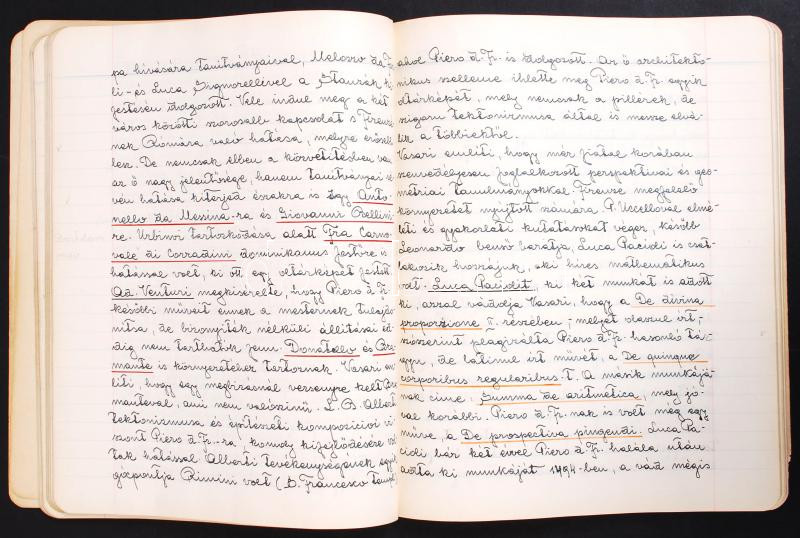 pa hívására tanítványaival, Melozzo da F
li- és Luca Signorellivel a Stanzák
festésén dolgozott. Vele indul meg a két
város közötti szorosabb kapcsolat s Firenzé
nek Rómára való hatása, melyre
lesz. De nemcsak ebben a közvetítésben van
az ő nagy jelentősége, hanem tanítványai ré
vén hatása kiterjed északra is Így Anto-
nello da Messina-ra és Giovanni Bellini-
re. Urbinoi tartózkodása alatt Fra Carno-
vale di Corradini dominikánus festőre is
hatással volt, ki ott egy oltárképét festett
Ad. Venturi megkísérelte, hogy Piero d. Fr.
későbbi műveit ennek a mesternek tulajdo
nítsa, de bizonyíték nélküli állításai ed
dig nem tarthatók fenn. Donatello és Bra
mante is környezetéhez tartoznak. Vasari em
líti, hogy egy megbízásnál versenyre kelt Bra
mantéval, ami nem valószínű. L. B. Alberti
tektonizmusa és építészeti kompozíciói vi
szont Piero d. Fr.-ra komoly kifejlődésére vol
tak hatással Alberti tevékenységének egyik
gócpontja Rimini volt (S. Francesco templ
ahol Piero d. Fr. is dolgozott. Az ő architekto-
nikus szelleme ihlette meg Piero d. Fr. egyik
oltárképét, mely nemcsak a pillérek, de
szigorú tektonizmusa által is messze elvá-
lik a többiektől.
Vasari említi, hogy már fiatal korában
szenvedélyesen foglalkozott perspektívai és geo-
metriai tanulmányokkal. Firenze megfelelő
környezetet nyújtott számára P. Uccelloval elmé-
leti és gyakorlati kutatásokat végez, később
Leonardo benső barátja, Luca Pacioli is csat-
lakozik hozzájuk, aki híres mathematikus
volt. Luca Paciolit, ki két munkát is adott
ki, azzal vádolja Vasari, hogy a De divina
proporzione II. részében, melyet olaszul írt,
szószerint plagizálta Piero d. Fr. hasonló tár-
gyú, de latinul írt művét, a De quinque
corporibus regularibus-t. A másik munkájá-
nak címe: Summa de aritmetica, mely jó-
val korábbi. Piero d. Fr.-nak is volt még egy
műve, a De prospectiva pingendi. Luca Pa-
cioli bár két évvel Piero d. Fr. halála után
adta ki munkáját 1494-ben, a vád mégis